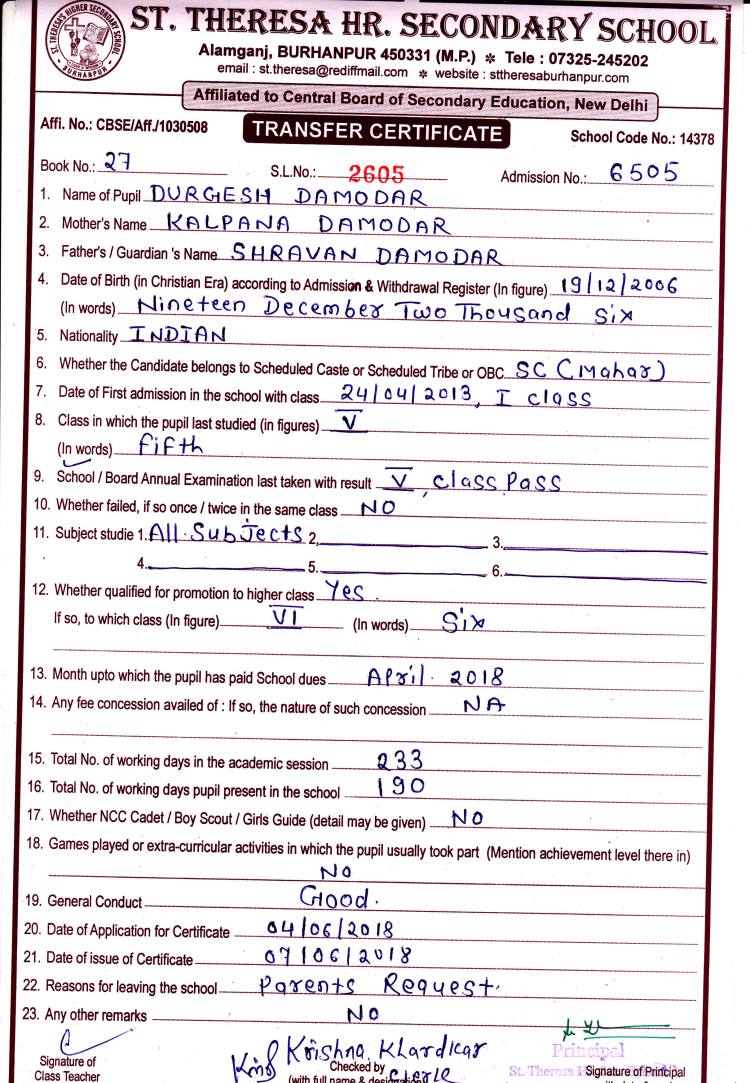 ST. THERESA'S HIGHER SECONDARY SCHOOL
BURHANPUR
ST. THERESA HR. SECONDARY SCHOOL
Alamganj, BURHANPUR 450331 (M.P.) * Tele : 07325-245202
email : st.theresa@rediffmail.com * website : sttheresaburhanpur.com
Affiliated to Central Board of Secondary Education, New Delhi
Affi. No.: CBSE/Aff./1030508 TRANSFER CERTIFICATE School Code No.: 14378
Book No.: 27 S.L.No.: 2605 Admission No.: 6505
1. Name of Pupil DURGESH DAMODAR
2. Mother's Name KALPANA DAMODAR
3. Father's / Guardian 's Name SHRAVAN DAMODAR
4. Date of Birth (in Christian Era) according to Admission & Withdrawal Register (In figure) 19/12/2006
(In words) Nineteen December Two Thousand Six
5. Nationality INDIAN
6. Whether the Candidate belongs to Scheduled Caste or Scheduled Tribe or OBC SC (Mahar)
7. Date of First admission in the school with class 24/04/2013, I class
8. Class in which the pupil last studied (in figures) V
(In words) Fifth
9. School / Board Annual Examination last taken with result V, class Pass
10. Whether failed, if so once / twice in the same class NO
11. Subject studie 1. All Subjects 2. 3.
4. 5. 6.
12. Whether qualified for promotion to higher class Yes.
If so, to which class (In figure) VI (In words) Six
13. Month upto which the pupil has paid School dues April. 2018
14. Any fee concession availed of : If so, the nature of such concession NA
15. Total No. of working days in the academic session 233
16. Total No. of working days pupil present in the school 190
17. Whether NCC Cadet / Boy Scout / Girls Guide (detail may be given) NO
18. Games played or extra-curricular activities in which the pupil usually took part (Mention achievement level there in)
NO
19. General Conduct Good.
20. Date of Application for Certificate 04/06/2018
21. Date of issue of Certificate 07/06/2018
22. Reasons for leaving the school Parents Request.
23. Any other remarks NO
Krishna Khardikar
Principal
Signature of Checked by St. Theresa Signature of Principal
Class Teacher (with full name & designation) Clerk